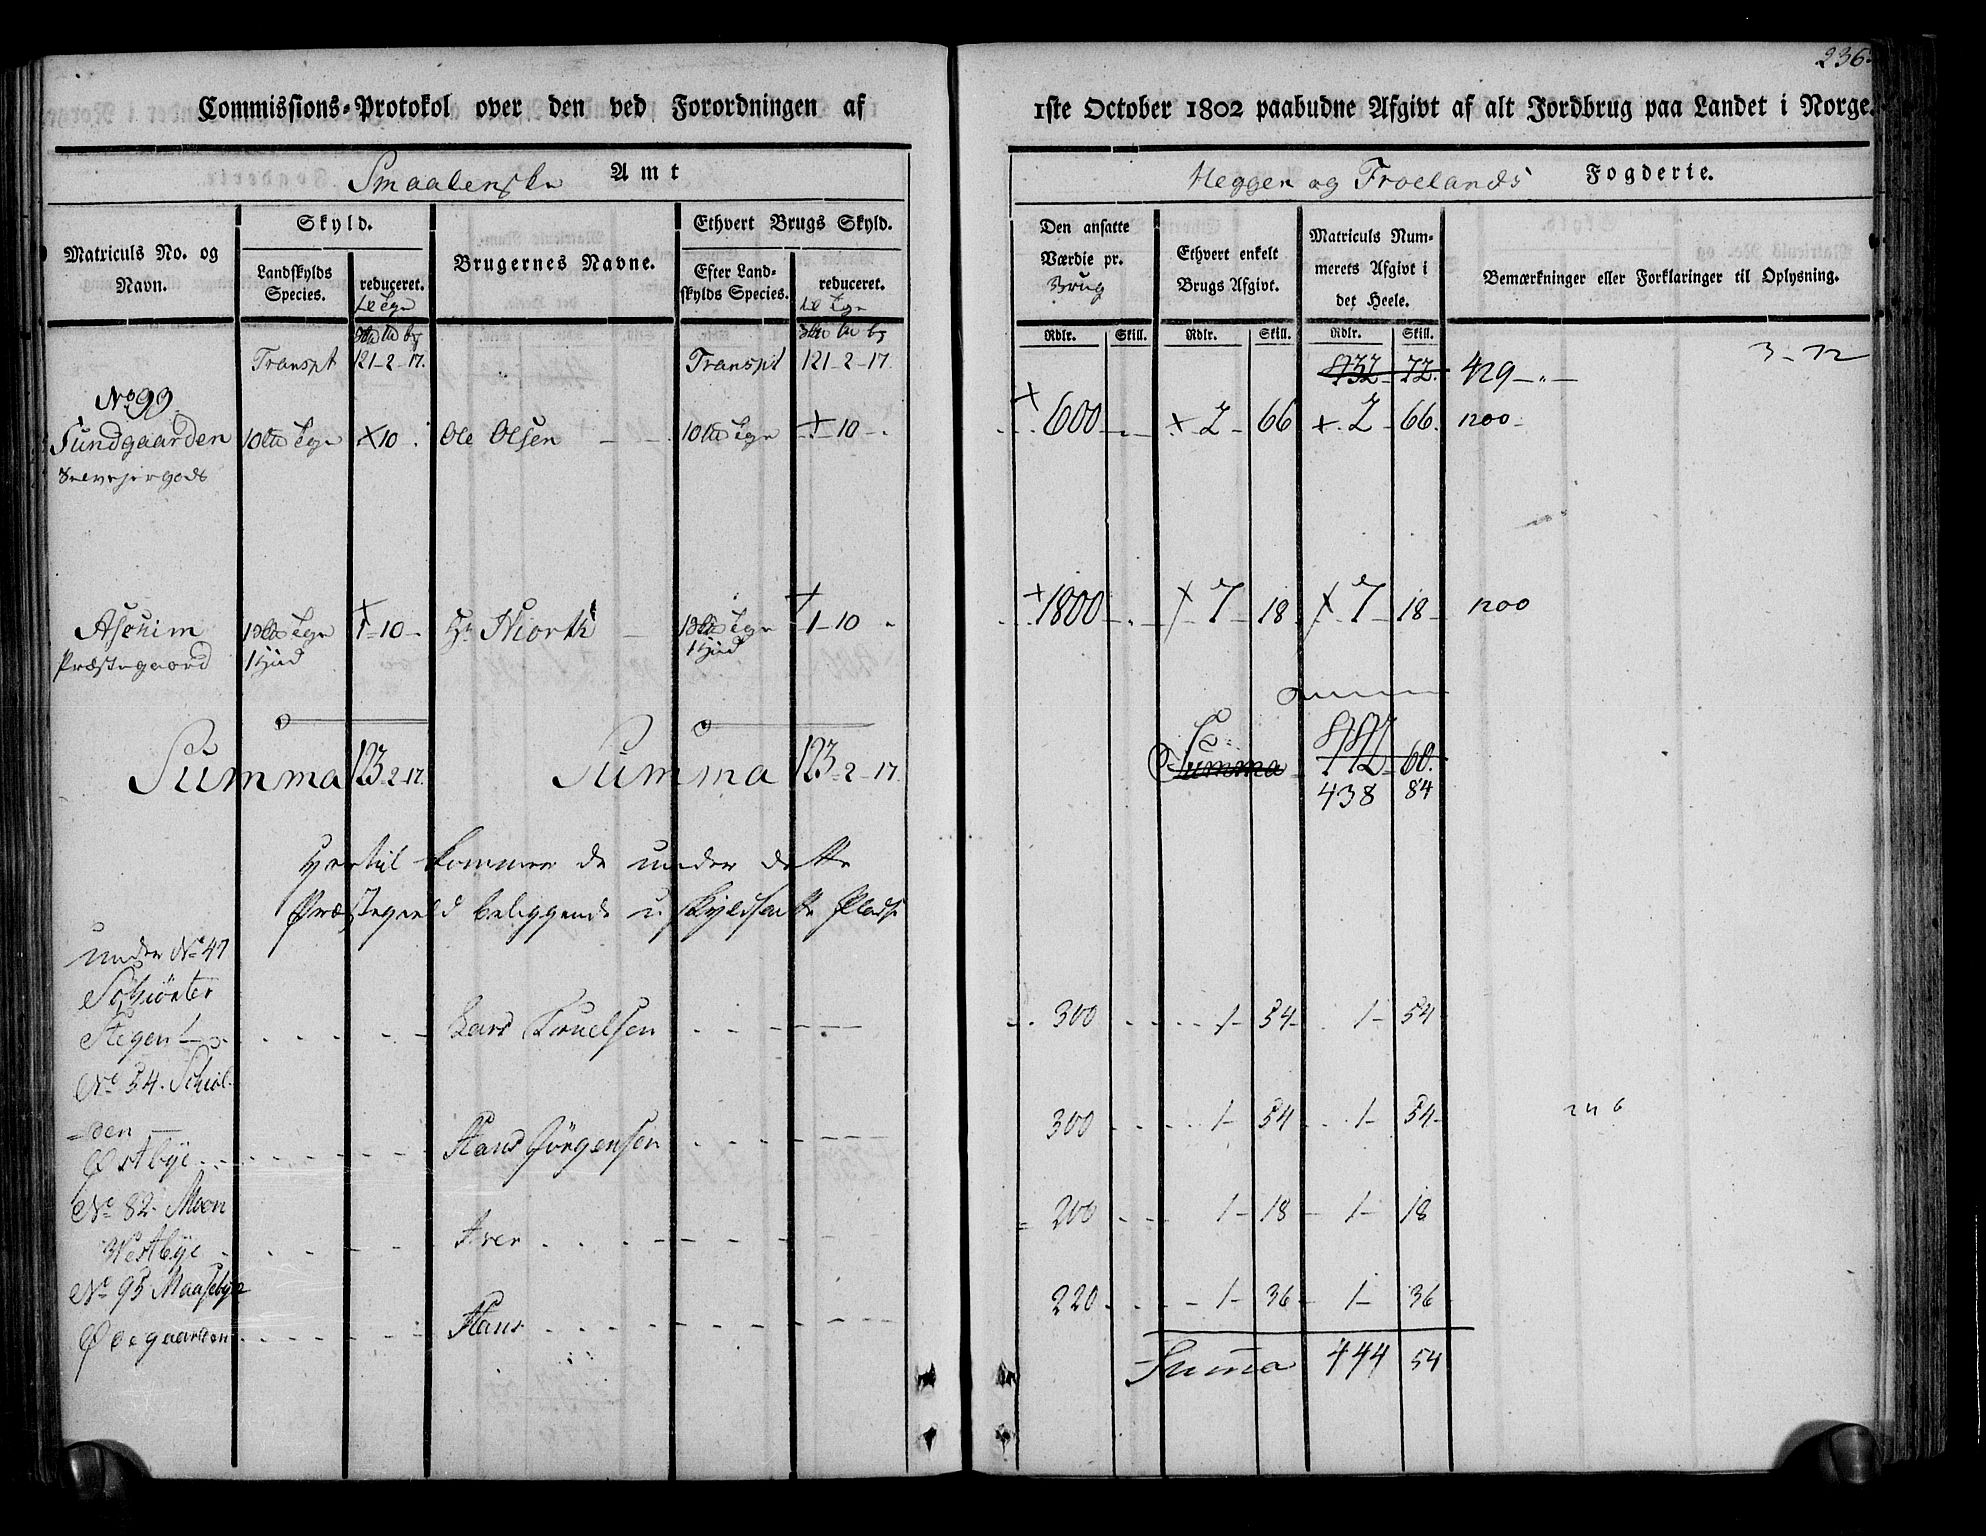 236.
Commissions-Protokol over den ved Forordningen af
1ste October 1802 paabudne Afgivt af alt Jordbrug paa Landet i Norge.
Smaalenske Amt
Heggen og Froelands Fogderie.
Matriculs No. og Navn.
Skyld.
Landskylds Species.
reduceret.
Brugernes Navne.
Ethvert Brugs Skyld.
Efter Landskylds Species.
reduceret.
Den ansatte Værdie pr. Brug
Ethvert enkelt Brugs Afgivt.
Matriculs Nummerets Afgivt i det Heele.
Bemærkninger eller Forklaringer til Oplysning.
Rdlr. Skill. Rdlr. Skill. Rdlr. Skill.
Transpt 121-2-17. Transpt 121-2-17. 932-72. 429-"-
3-72
No 99.
Sundgaarden 10 Ole Olsen 10 600 2 66 2 66.
Aschim 1-10 Hr Niorth 1-10 1800 7 18 7 18
Præstegaard 1 Hud 1 Hud
Summa 123-2-17. Summa 123-2-17. Summa 60.
438 84
Hertil kommer de under dette
Præstegield beliggende uskyldsatte Pladse
under No 47
Schiönter
Stegen Lars Truelsen 300 1 54 1 54
No 54. Schiöl-
den
Østbye Hans Jörgensen 300 1 54 1 54
No 82. Moen
Westbye Iver 200 1 18 1 18
No 95 Maasebye
Ødegaarden Hans 220 1 36 1 36
Summa 444 54